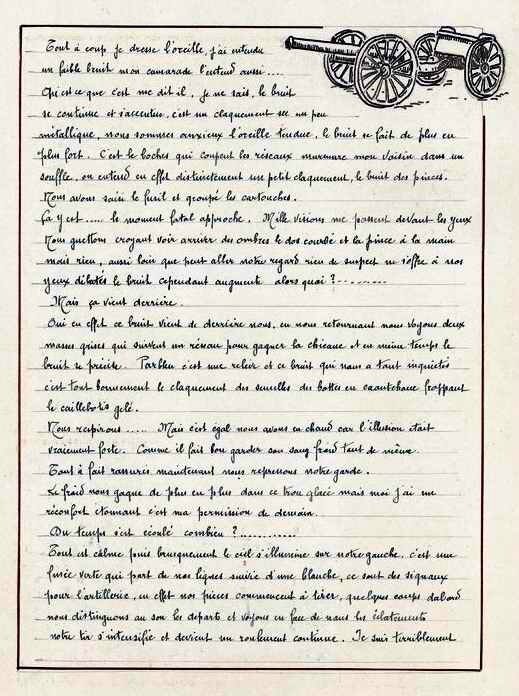 Tout à coup je dresse l'oreille, j'ai entendu
un faible bruit mon camarade l'entend aussi....
Qu'est ce que c'est me dit il. Je ne sais, le bruit
se continue et s'accentue, c'est un claquement sec un peu
métallique, nous sommes anxieux l'oreille tendue, le bruit se fait de plus en
plus fort. C'est le boches qui coupent les réseaux murmure mon voisin dans un
souffle, on entend en effet distinctement un petit claquement, le bruit des pinces.
Nous avons saisi le fusil et groupé les cartouches.
Ça y est ..... le moment fatal approche. Mille visions me passent devant les yeux
Nous guettons croyant voir arriver des ombres le dos courbé et la pince à la main
mais rien, aussi loin que peut aller notre regard rien de suspect ne s'offre à nos
yeux dilatés le bruit cependant augmente alors quoi ?..........
Mais ça vient derrière.
Oui en effet ce bruit vient de derrière nous, en nous retournant nous voyons deux
masses grises qui suivent un réseau pour gagner la chicane et en même temps le
bruit se précise. Parbleu c'est une relève et ce bruit qui nous a tant inquiétés
c'est tout bonnement le claquement des semelles des bottes en caoutchouc frappant
le caillebotis gelé.
Nous respirons ..... Mais c'est égal nous avons eu chaud car l'illusion était
vraiement forte. Comme il fait bon garder son sang froid tout de même.
Tout à fait rassurés maintenant nous reprenons notre garde.
Le froid nous gagne de plus en plus dans ce trou glacé mais moi j'ai un
réconfort étonnant c'est ma permission de demain.
Du temps s'est écoulé combien ?............
Tout est calme puis brusquement le ciel s'illumine sur notre gauche, c'est une
fusée verte qui part de nos lignes suivie d'une blanche, ce sont des signaux
pour l'artillerie, en effet nos pièces commencent à tirer, quelques coups d'abord
nous distinguons au son les départs et voyons en face de nous les éclatements
notre tir s'intensifie et devient un roulement continue. Je suis terriblement